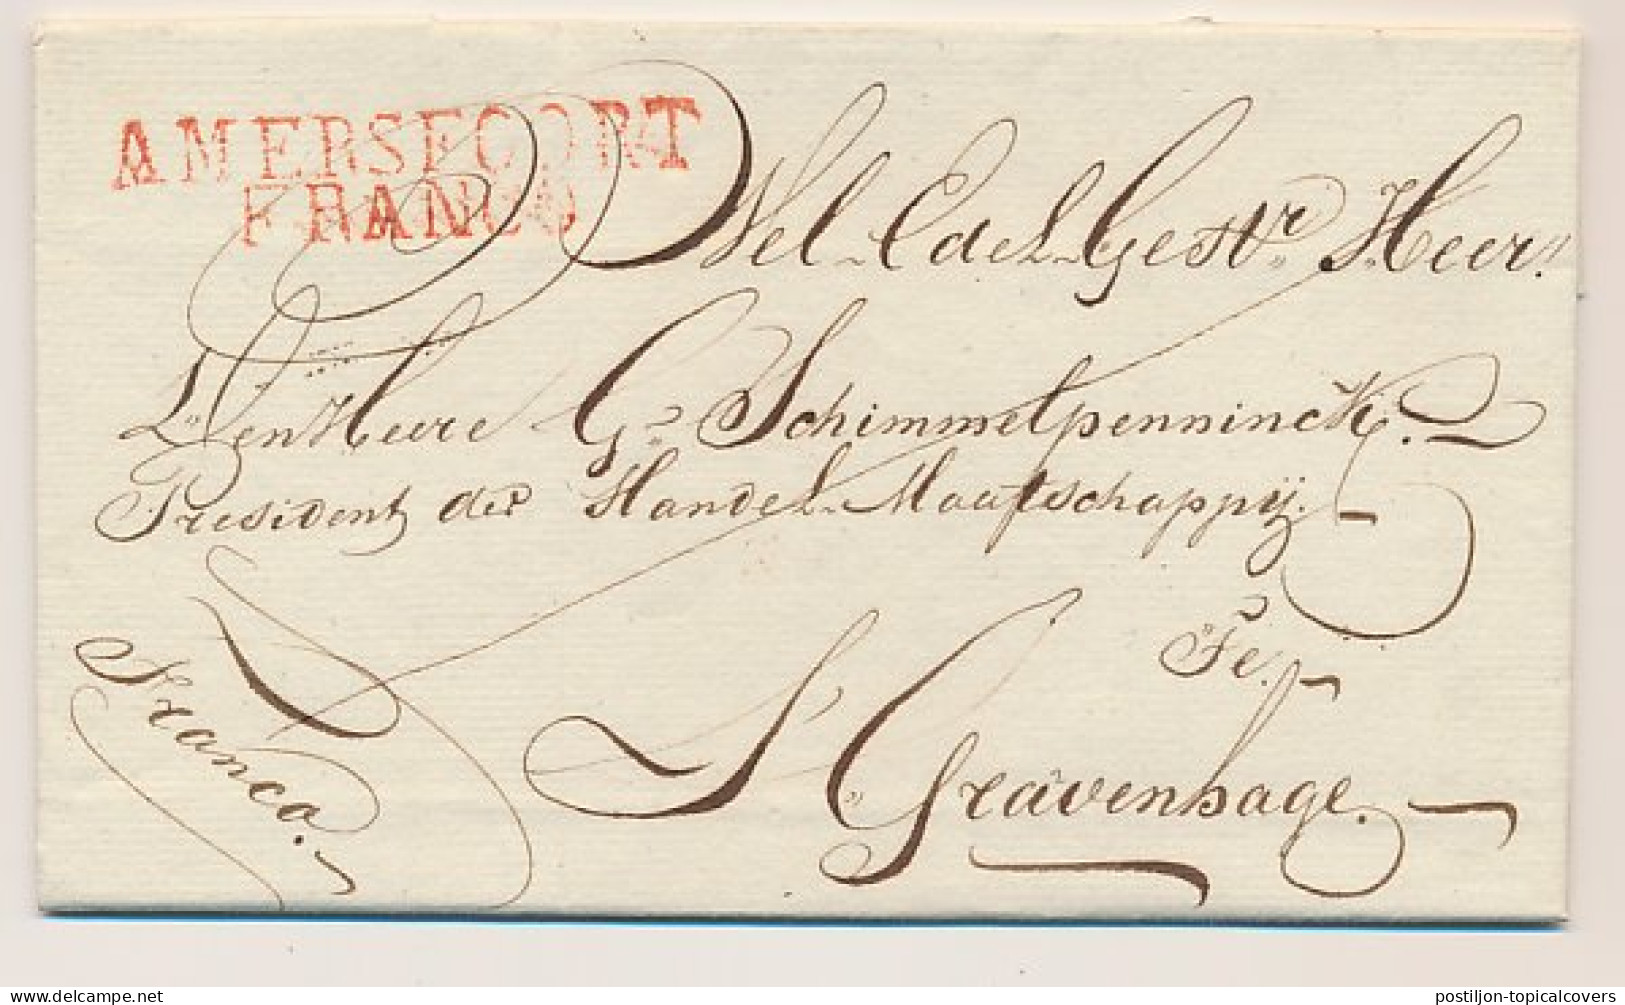 AMERSFOORT
FRANCO
Wel-Edel-Gestr. Heer.
Den Heere G. Schimmelpenninck.
President der Handel-Maatschappij.
Te.
S' Gravenhage.
Franco.
postiljon-topicalcovers